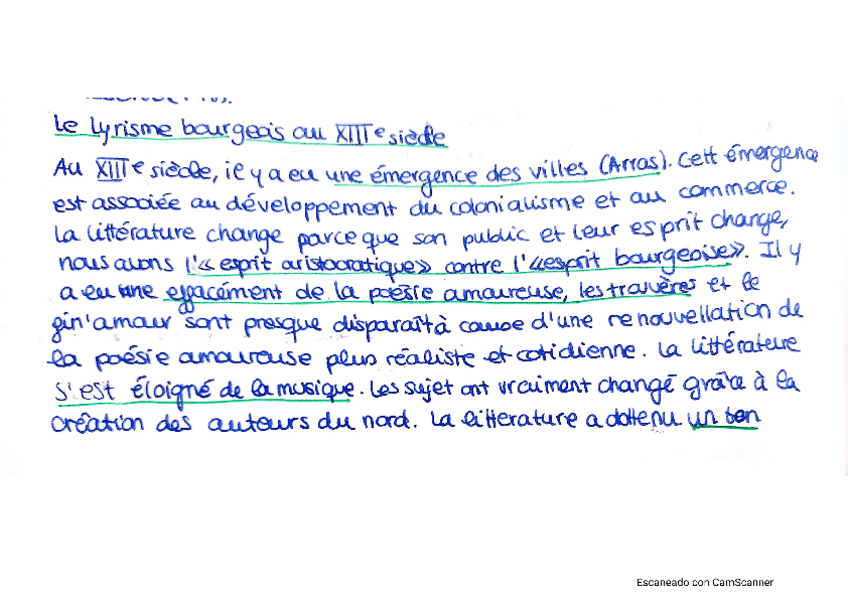 Le Lyrisme bourgeois au XIIIe siècle
Au XIIIe siècle, il y a eu une émergence des villes (Arras). Cett émergence
est associée au développement du colonialisme et au commerce.
La littérature change parce que son public et leur esprit change,
nous avons l'« esprit aristocratique» contre l'«esprit bourgeoise». Il y
a eu une effacément de la poésie amoureuse, les et le
fin'amour sont presque disparaît à cause d'une renouvellation de
la poésie amoureuse plus réaliste et cotidienne. La littérature
s'est éloigné de la musique. Les sujet ont vraiment changé grâce à la
création des auteurs du nord. La litterature a un ton
Escaneado con CamScanner